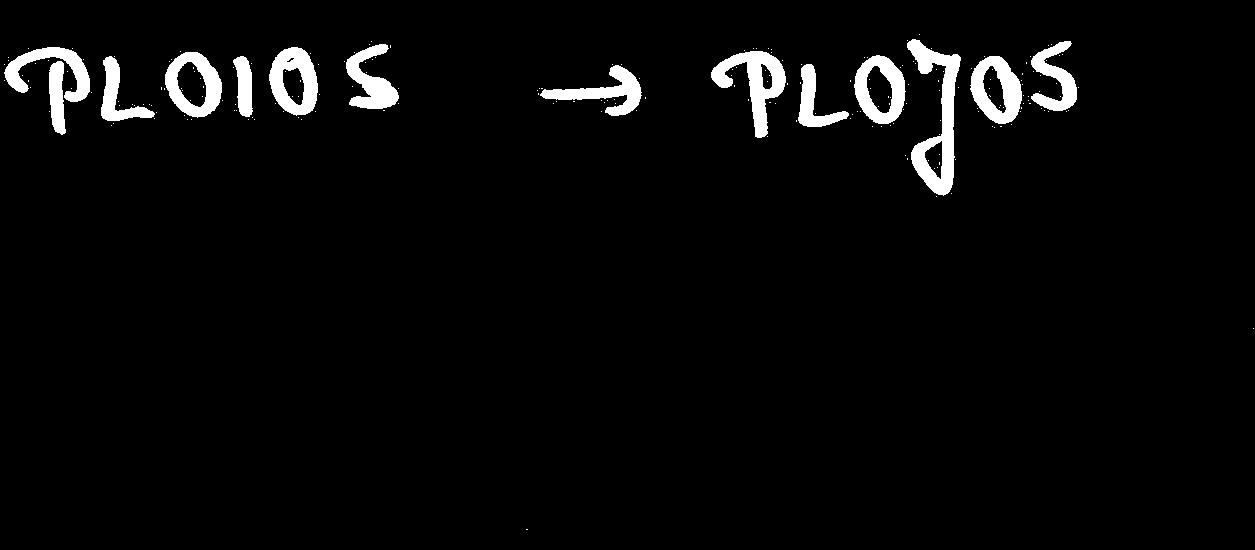 PLOIOS → PLOJOS